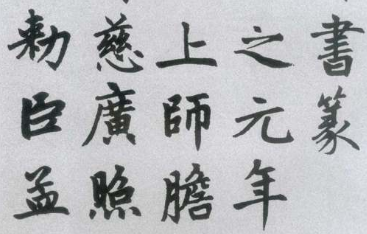 書篆
之元年
上師膽
慈廣照
勅臣孟